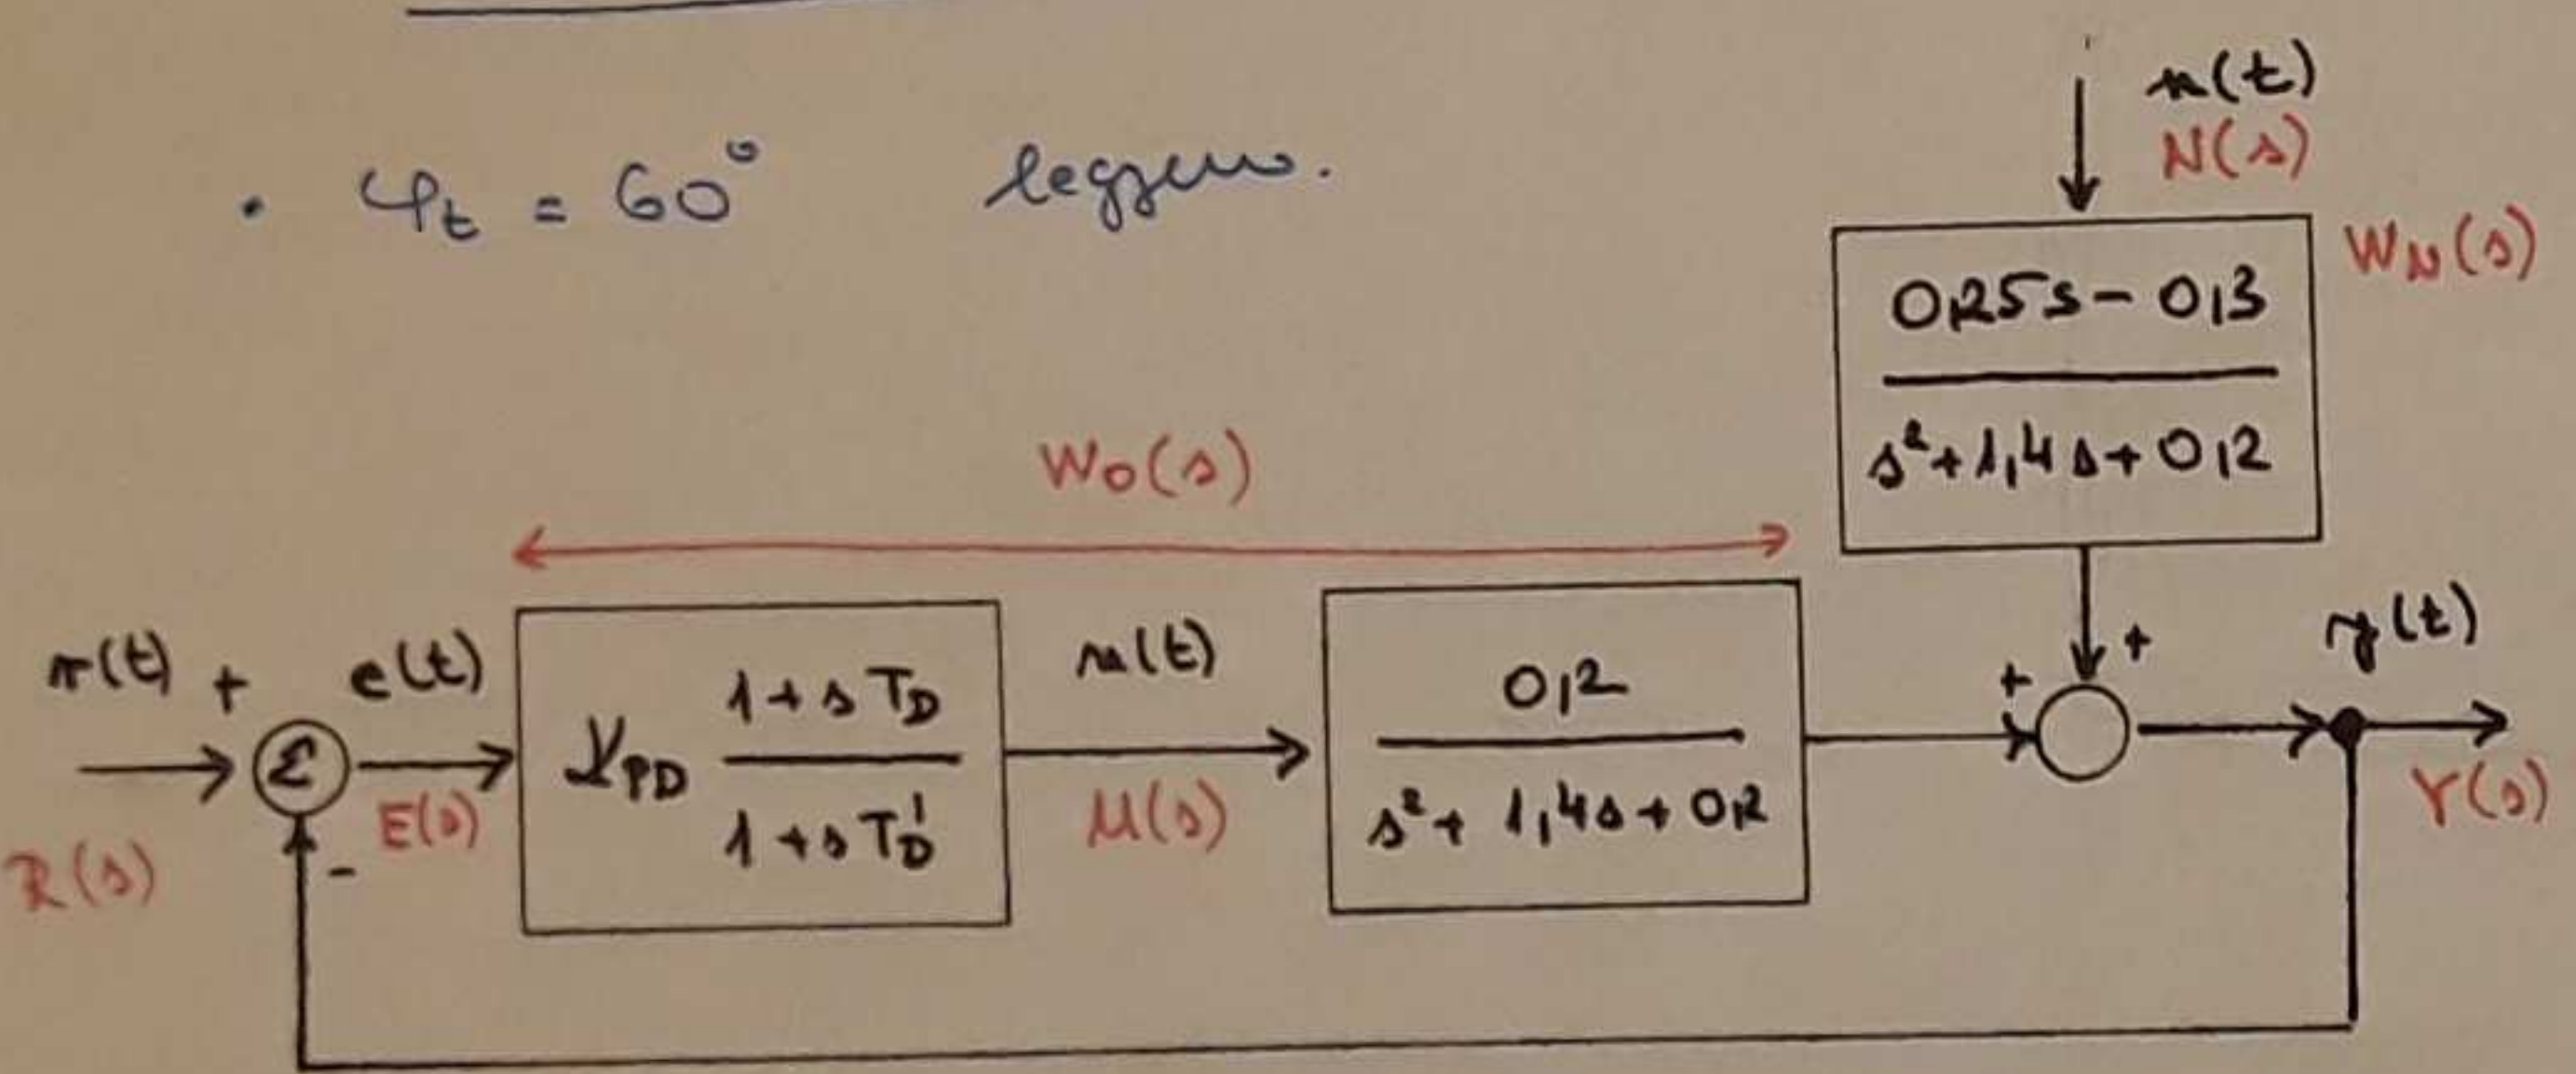 • φt = 60° legyen.
n(t)
N(s)
WN(s)
0,25s - 0,3
s²+1,4s+0,2
Wo(s)
r(t) + e(t)
R(s) - E(s)
KPD
1+sTD
1+sTD'
u(t)
U(s)
0,2
s²+1,4s+0,2
+ +
y(t)
Y(s)
Σ